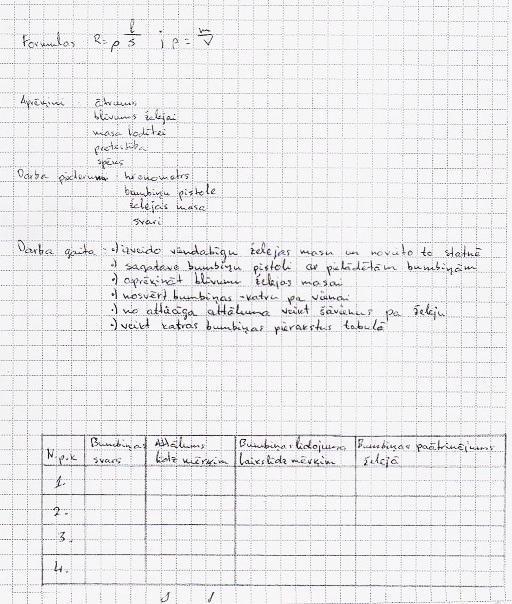 Formulas R=ρ l/s ; ρ = m/V
Aprēķini: ātrums
blīvums želejai
masa lodītei
pretestība
spēks
Darba piederumi: hronometrs
bumbiņu pistole
želejas masa
svari
Darba gaita: •) izveido viendabīgu želejas masu un novieto to statnē
•) sagatavo bumbiņu pistoli ar pielādētām bumbiņām
•) aprēķināt blīvumu želejas masai
•) nosvērt bumbiņas - katru pa vienai
•) no attiecīga attāluma veikt šāvienus pa želeju
•) veikt katras bumbiņas pierakstus tabulā
N.p.k Bumbiņas svars Attālums līdz mērķim Bumbiņas lidojuma laiks līdz mērķim Bumbiņas paātrinājums želejā
1.
2.
3.
4.